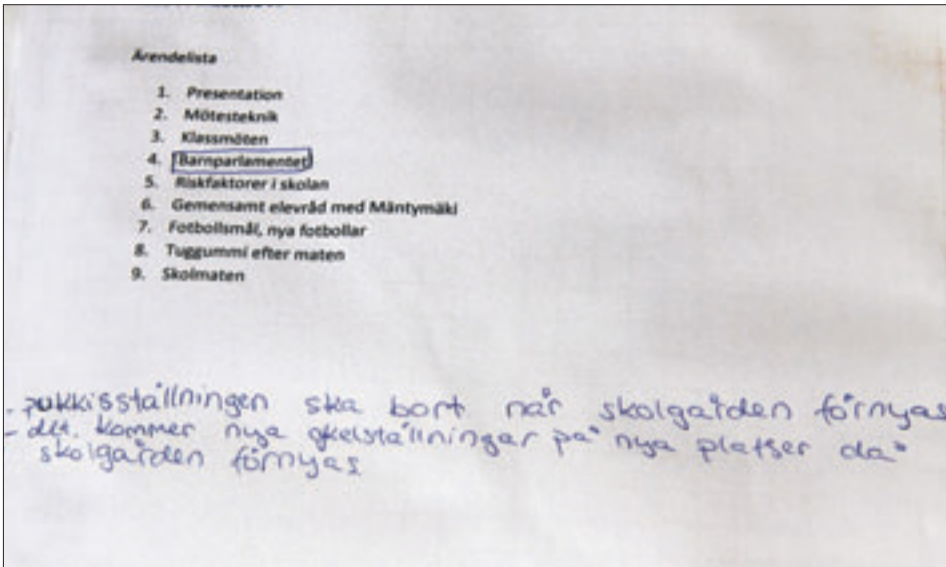 Ärendelista
1. Presentation
2. Mötesteknik
3. Klassmöten
4. Barnparlamentet
5. Riskfaktorer i skolan
6. Gemensamt elevråd med Mäntymäki
7. Fotbollsmål, nya fotbollar
8. Tuggummi efter maten
9. Skolmaten
- pukkisställningen ska bort när skolgården förnyas
- det kommer nya ställningar på nya platser då
skolgården förnyas